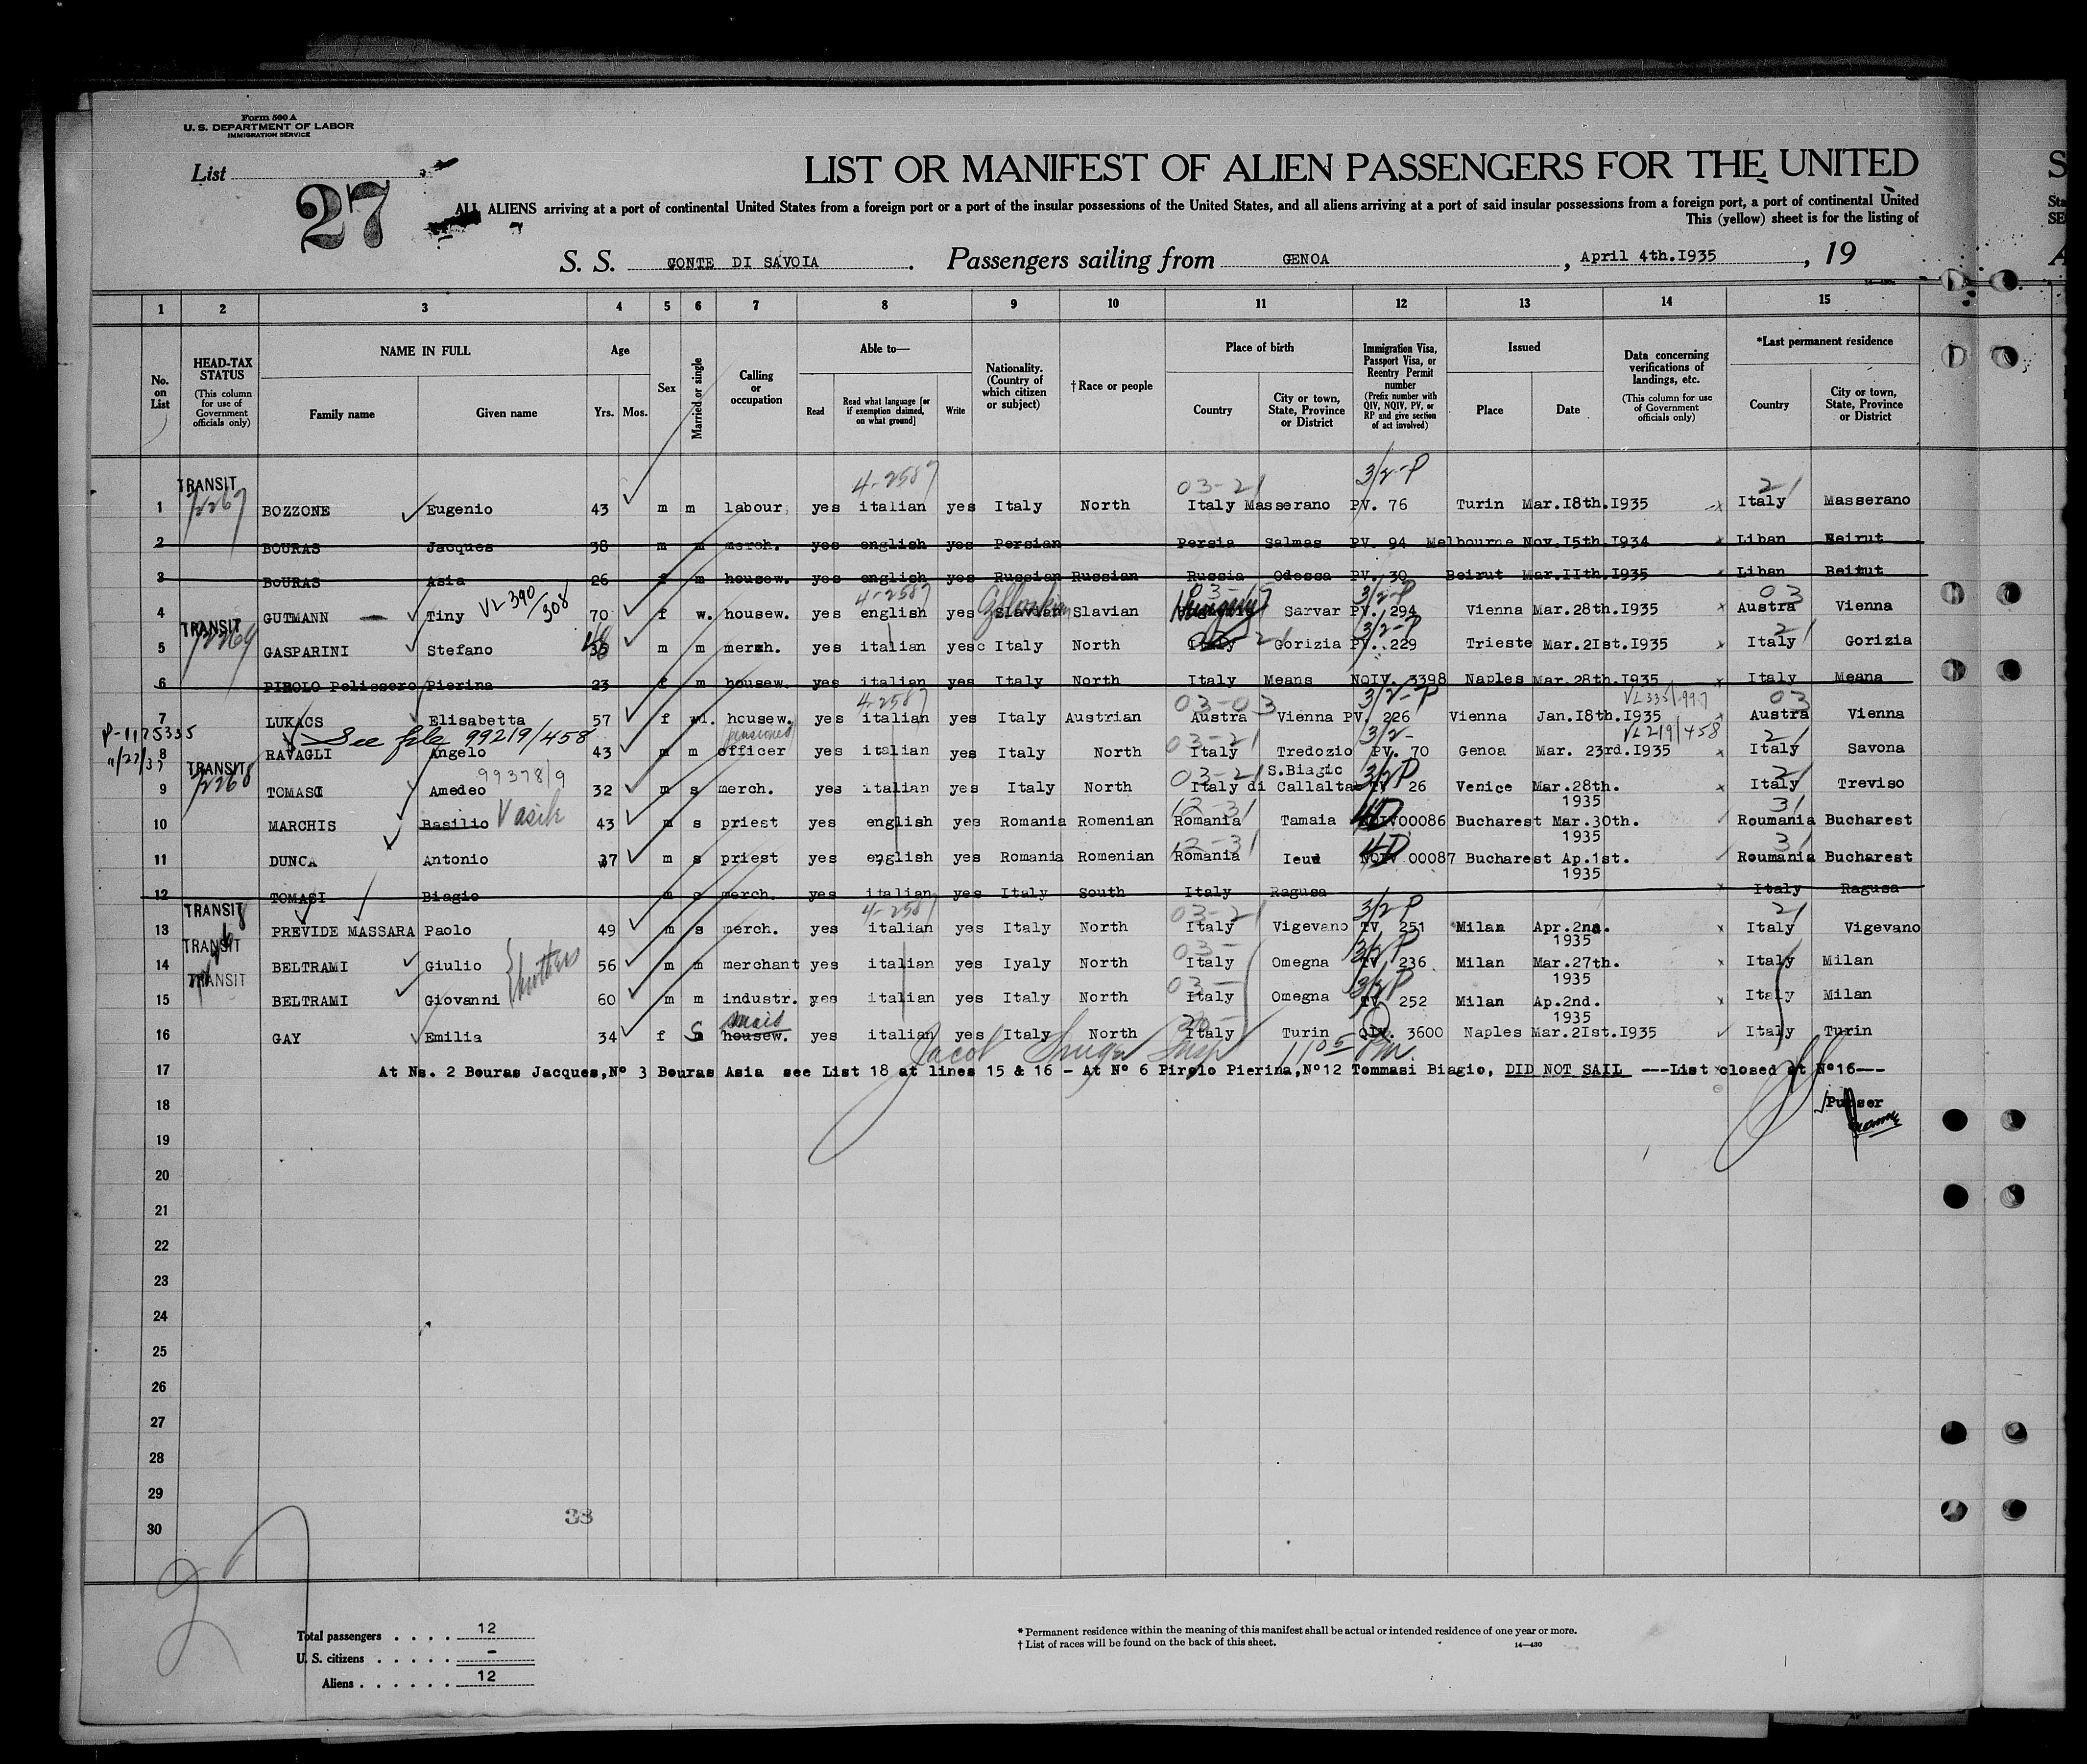 Form 500 A
U. S. DEPARTMENT OF LABOR
IMMIGRATION SERVICE
List
27
LIST OR MANIFEST OF ALIEN PASSENGERS FOR THE UNITED
ALL ALIENS arriving at a port of continental United States from a foreign port or a port of the insular possessions of the United States, and all aliens arriving at a port of said insular possessions from a foreign port, a port of continental United
This (yellow) sheet is for the listing of
S. S. CONTE DI SAVOIA. Passengers sailing from GENOA, April 4th.I935, 19
1 2 3 4 5 6 7 8 9 10 11 12 13 14 15
No. on List
HEAD-TAX STATUS (This column for use of Government officials only)
NAME IN FULL
Family name Given name
Age
Yrs. Mos.
Sex
Married or single
Calling or occupation
Able to—
Read
Read what language [or if exemption claimed, on what ground]
Write
Nationality. (Country of which citizen or subject)
† Race or people
Place of birth
Country
City or town, State, Province or District
Immigration Visa, Passport Visa, or Reentry Permit number (Prefix number with QIV, NQIV, PV, or RP and give section of act involved)
Issued
Place Date
Data concerning verifications of landings, etc. (This column for use of Government officials only)
*Last permanent residence
Country
City or town, State, Province or District
4-2587 03-21 3/2-P 21
TRANSIT
1 BOZZONE Eugenio 43 m m labour yes italian yes Italy North Italy Masserano PV. 76 Turin Mar.I8th.I935 Italy Masserano
2 BOURAS Jacques 38 m m merch. yes english yes Persian Persia Salmas PV. 94 Melbourne Nov.I5th.I934 Liban Beirut
3 BOURAS Asia 26 f m housew. yes english yes Russian Russian Russia Odessa PV. 30 Beirut Mar.IIth.I935 Liban Beitut
4-2587 3/2-P 03
4 GUTMANN Tiny VL 390/308 70 f w. housew. yes english yes Slavian Slavian Hungary Sarvar PV. 294 Vienna Mar.28th.I935 Austra Vienna
TRANSIT 3/2-P 21
5 GASPARINI Stefano m m merch. yes italian yes Italy North Italy Gorizia PV. 229 Trieste Mar.2Ist.I935 Italy Gorizia
6 PIROLO Pelissero Pierina 23 f m housew. yes italian yes Italy North Italy Means NQIV. 3398 Naples Mar.28th.I935 Italy Meana
4-2587 03-03 3/2-P VL335/997 03
7 LUKACS Elisabetta 57 f wi. housew. yes italian yes Italy Austrian Austra Vienna PV. 226 Vienna Jan.I8th.I935 Austra Vienna
P-1175335 See file 99219/458 pensioned 3/2- VL219/458
11/27/37
8 RAVAGLI Angelo 43 m m officer yes italian yes Italy North Italy Tredozio PV. 70 Genoa Mar. 23rd.I935 Italy Savona
TRANSIT 99378/9 03-21 S.Biagio 3/2P 21
9 TOMASI Amedeo 32 m s merch. yes italian yes Italy North Italy di Callalta 26 Venice Mar.28th. Italy Treviso
12-31 1935 31
10 MARCHIS Basilio Vasile 43 m s priest yes english yes Romania Romenian Romania Tamaia 4D 00086 Bucharest Mar.30th. Roumania Bucharest
12-31 1935 31
11 DUNCA Antonio 37 m s priest yes english yes Romania Romenian Romania Ieud 4D 00087 Bucharest Ap.1st. Roumania Bucharest
1935
12 TOMASI Biagio m s merch. yes italian yes Italy South Italy Ragusa Italy Ragusa
TRANSIT 4-2587 03-21 3/2P 21
13 PREVIDE MASSARA Paolo 49 m s merch. yes italian yes Italy North Italy Vigevano TV. 251 Milan Apr.2nd. Italy Vigevano
TRANSIT 03- 3/2P 1935
14 BELTRAMI Giulio 56 m m merchant yes italian yes Iyaly North Italy Omegna TV. 236 Milan Mar.27th. Italy Milan
TRANSIT brothers 03- 3/2P 1935
15 BELTRAMI Giovanni 60 m m industr. yes italian yes Italy North Italy Omegna TV. 252 Milan Ap.2nd. Italy Milan
maid 1935
16 GAY Emilia 34 f S housew. yes italian yes Italy North Italy Turin QIV. 3600 Naples Mar.2Ist.I935 Italy Turin
Jacob Insp 1105 PM.
17 At Ns. 2 Bouras Jacques,Nº 3 Bouras Asia see List 18 at lines 15 & 16 - At Nº 6 Pirolo Pierina,Nº12 Tommasi Biagio, DID NOT SAIL ---List closed at Nº16---
18 Purser
19
20
21
22
23
24
25
26
27
28
29
30
38
27
Total passengers . . . . 12
U. S. citizens . . . . . -
Aliens . . . . . . 12
* Permanent residence within the meaning of this manifest shall be actual or intended residence of one year or more.
† List of races will be found on the back of this sheet.
14—430